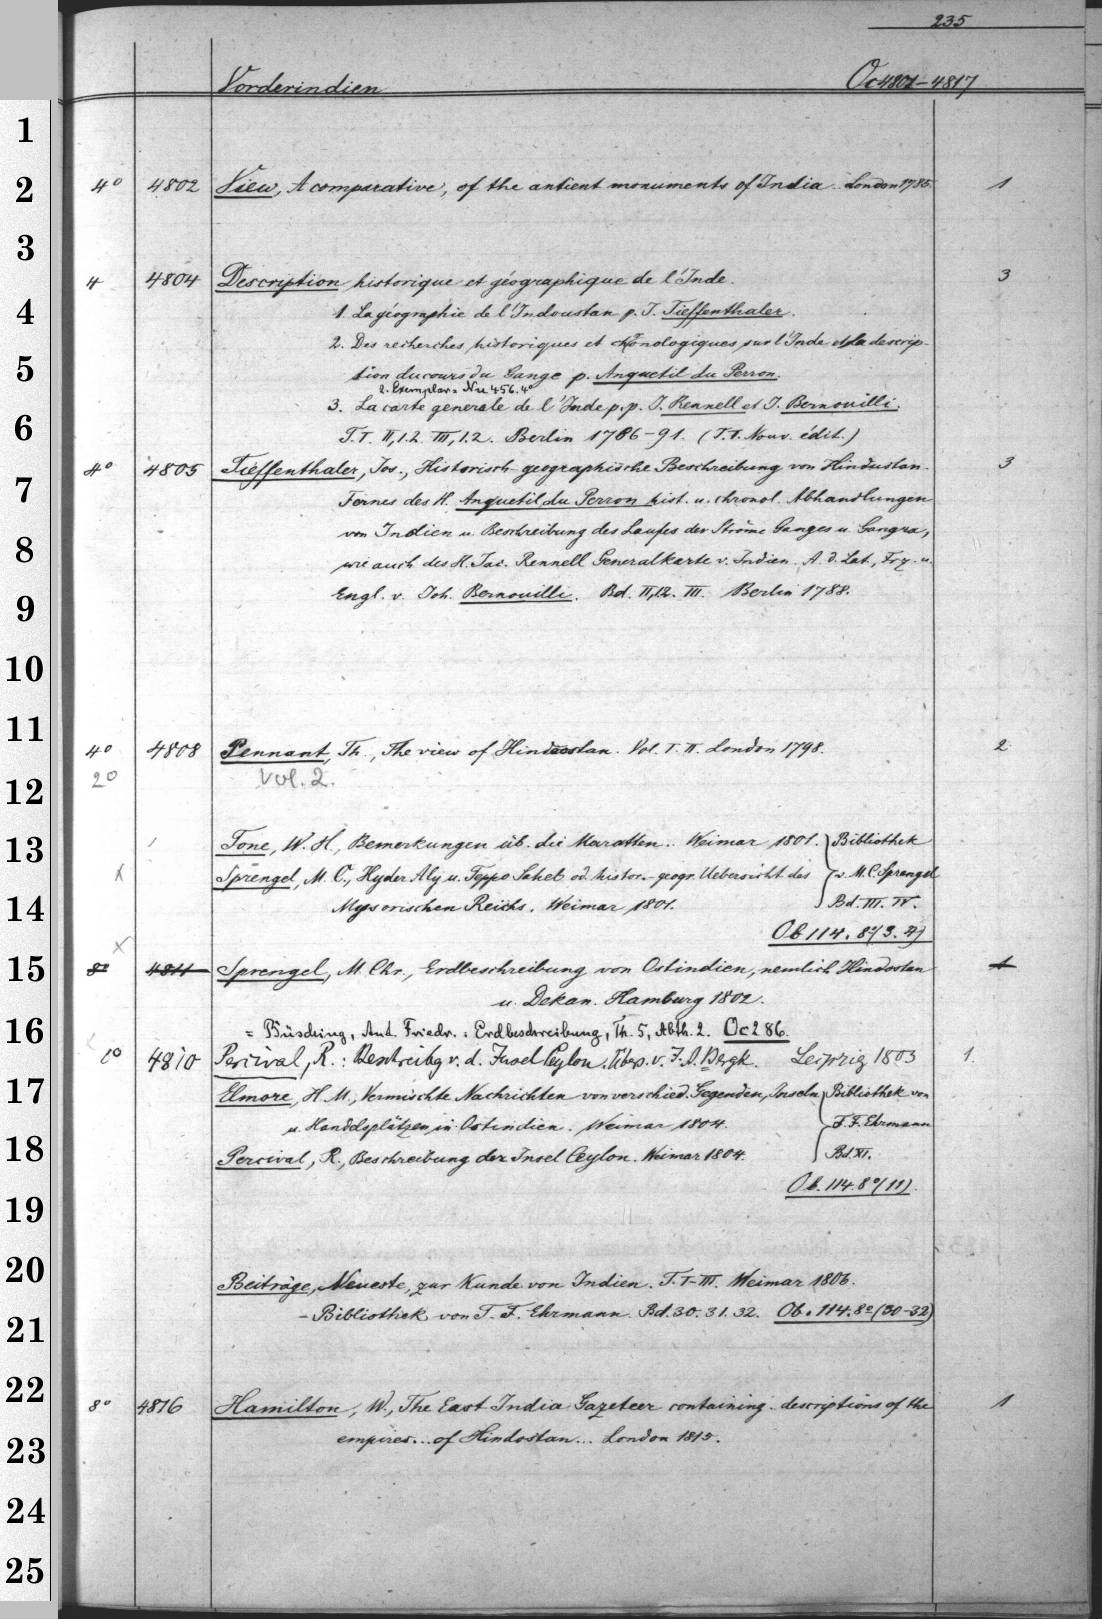 235
Vorderindien Oc 4802-4817
1
2 4° 4802 View, A comparative, of the antient monuments of India. London 1785. 1
3
4 4804 Description historique et géographique de l'Inde. 3
4 1. La géographie de l'Indoustan p. J. Tieffenthaler.
2. Des recherches historiques et chronologiques sur l'Inde et la descrip-
5 tion du cours du Gange p. Anquetil du Perron.
2. Exemplar = Nu 456. 4°
3. La carte generale de l'Inde p. p. J. Rennell et J. Bernouilli.
6 T. I. II,1.2. III,1.2. Berlin 1786-91. (T. I. Nouv. édit.)
4° 4805 Tieffenthaler, Jos., Historisch-geographische Beschreibung von Hindustan. 3
7 Fernes des H. Anquetil du Perron hist. u. chronol. Abhandlungen
8 von Indien u. Beschreibung des Laufes der Ströme Ganges u. Gangra,
wie auch des H. Jac. Rennell Generalkarte v. Indien. A. d. Lat., Frz. u.
9 Engl. v. Joh. Bernouilli. Bd. II,1.2. III. Berlin 1788.
10
11
4° 4808 Pennant, Th., The view of Hindoostan. Vol. I. II. London 1798. 2
2° Vol. 2.
12
13 Tone, W. H., Bemerkungen üb. die Maratten. Weimar 1801. Bibliothek
Sprengel, M. C., Hyder Aly u. Teppo Saheb od. histor.-geogr. Uebersicht des v. M. C. Sprengel
14 Mysorischen Reichs. Weimar 1801. Bd. III. IV.
Ob 114. 8°(3. 4)
15 8° 4811 Sprengel, M. Chr., Erdbeschreibung von Ostindien, nemlich Hindostan 1
u. Dekan. Hamburg 1802.
16 = Büsching, Ant. Friedr.: Erdbeschreibung, Th. 5, Abth. 2. Oc 286.
4810 Percival, R.: Beschreibg v. d. Insel Ceylon. Übers. v. J. A. Bergk. Leipzig 1803 1.
17 Elmore, H. M., Vermischte Nachrichten von verschied. Gegenden, Inseln Bibliothek von
u. Handelsplätzen in Ostindien. Weimar 1804. T. F. Ehrmann
18 Percival, R., Beschreibung der Insel Ceylon. Weimar 1804. Bd. XI.
Ob. 114. 8°(11)
19
20 Beiträge, Neueste, zur Kunde von Indien. T. I-III. Weimar 1806.
21 - Bibliothek von T. F. Ehrmann. Bd. 30. 31. 32. Ob. 114. 8°(30-32)
22 8° 4816 Hamilton, W., The East India Gazeteer containing descriptions of the 1
23 empires... of Hindostan... London 1815.
24
25